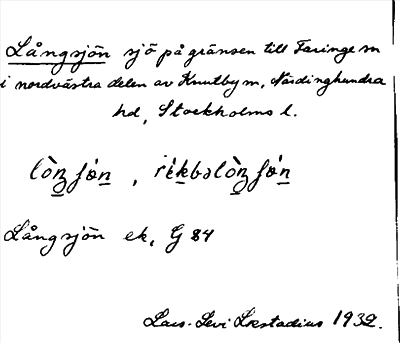 Långsjön sjö på gränsen till Faringe sn
i nordvästra delen av Knutby sn, Närdinghundra
hd, Stockholms l.
lòŋʒ ſǿn , rìkbəlòŋʒ ſǿn
Långsjön ek, G 84
Lars-Levi Læstadius 1932.